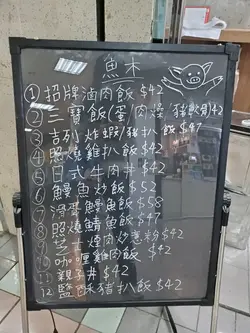 魚木
① 招牌滷肉飯 $42
② 三寶飯/蛋/肉燥/豬軟骨 $42
③ 吉列炸蝦/豬扒飯 $47
④ 照燒雞扒飯 $42
⑤ 日式牛肉丼 $42
⑥ 鰻魚炒飯 $52
⑦ 滑蛋鰻魚飯 $58
⑧ 照燒鯖魚飯 $47
⑨ 芝士煙肉炒意粉 $42
⑩ 咖喱雞肉飯 $42
11 親子丼 $42
12 鹽酥豬扒飯 $42